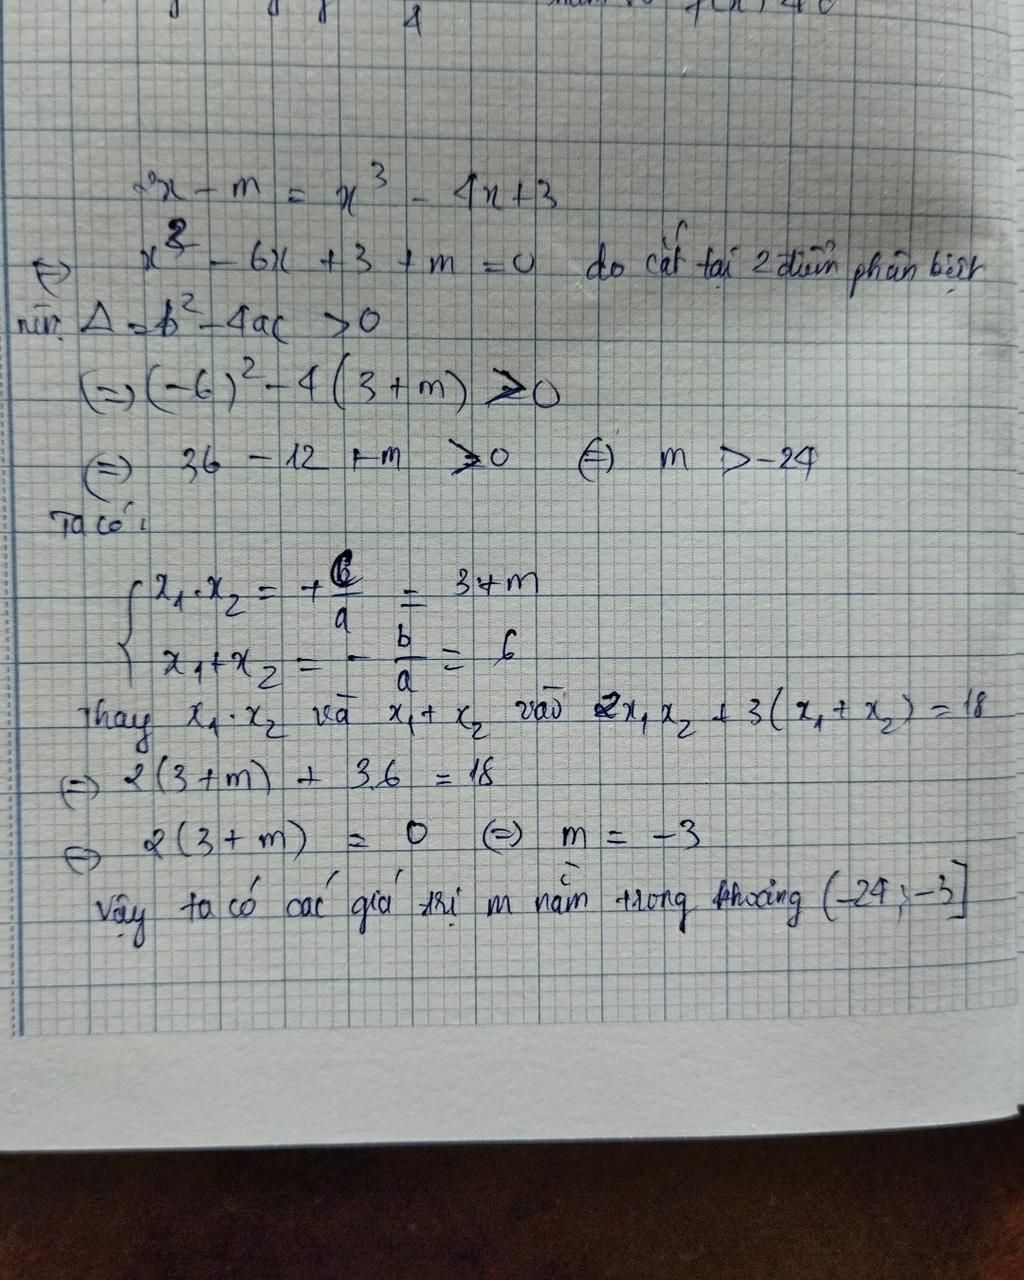 4
2x - m = x³ - 4x + 3
⇔ x² - 6x + 3 + m = 0 do cắt tại 2 điểm phân biệt
nên Δ = b² - 4ac > 0
⇔ (-6)² - 4(3 + m) > 0
⇔ 36 - 12 + m > 0 ⇔ m > -24
Ta có:
x₁ . x₂ = + c/a = 3 + m
x₁ + x₂ = - b/a = 6
Thay x₁ . x₂ và x₁ + x₂ vào 2x₁x₂ + 3(x₁ + x₂) = 18
⇔ 2(3 + m) + 3.6 = 18
⇔ 2(3 + m) = 0 ⇔ m = -3
Vậy ta có các giá trị m nằm trong khoảng (-24; -3]